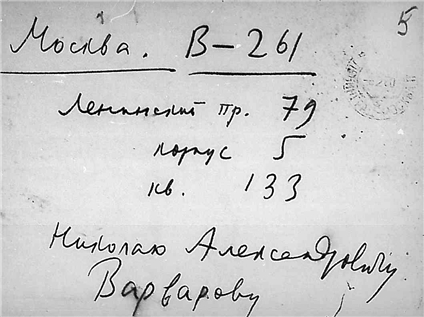 5
Москва. В-261
Ленинский пр. 79
корпус 5
кв. 133
Николаю Александровичу
Варварову